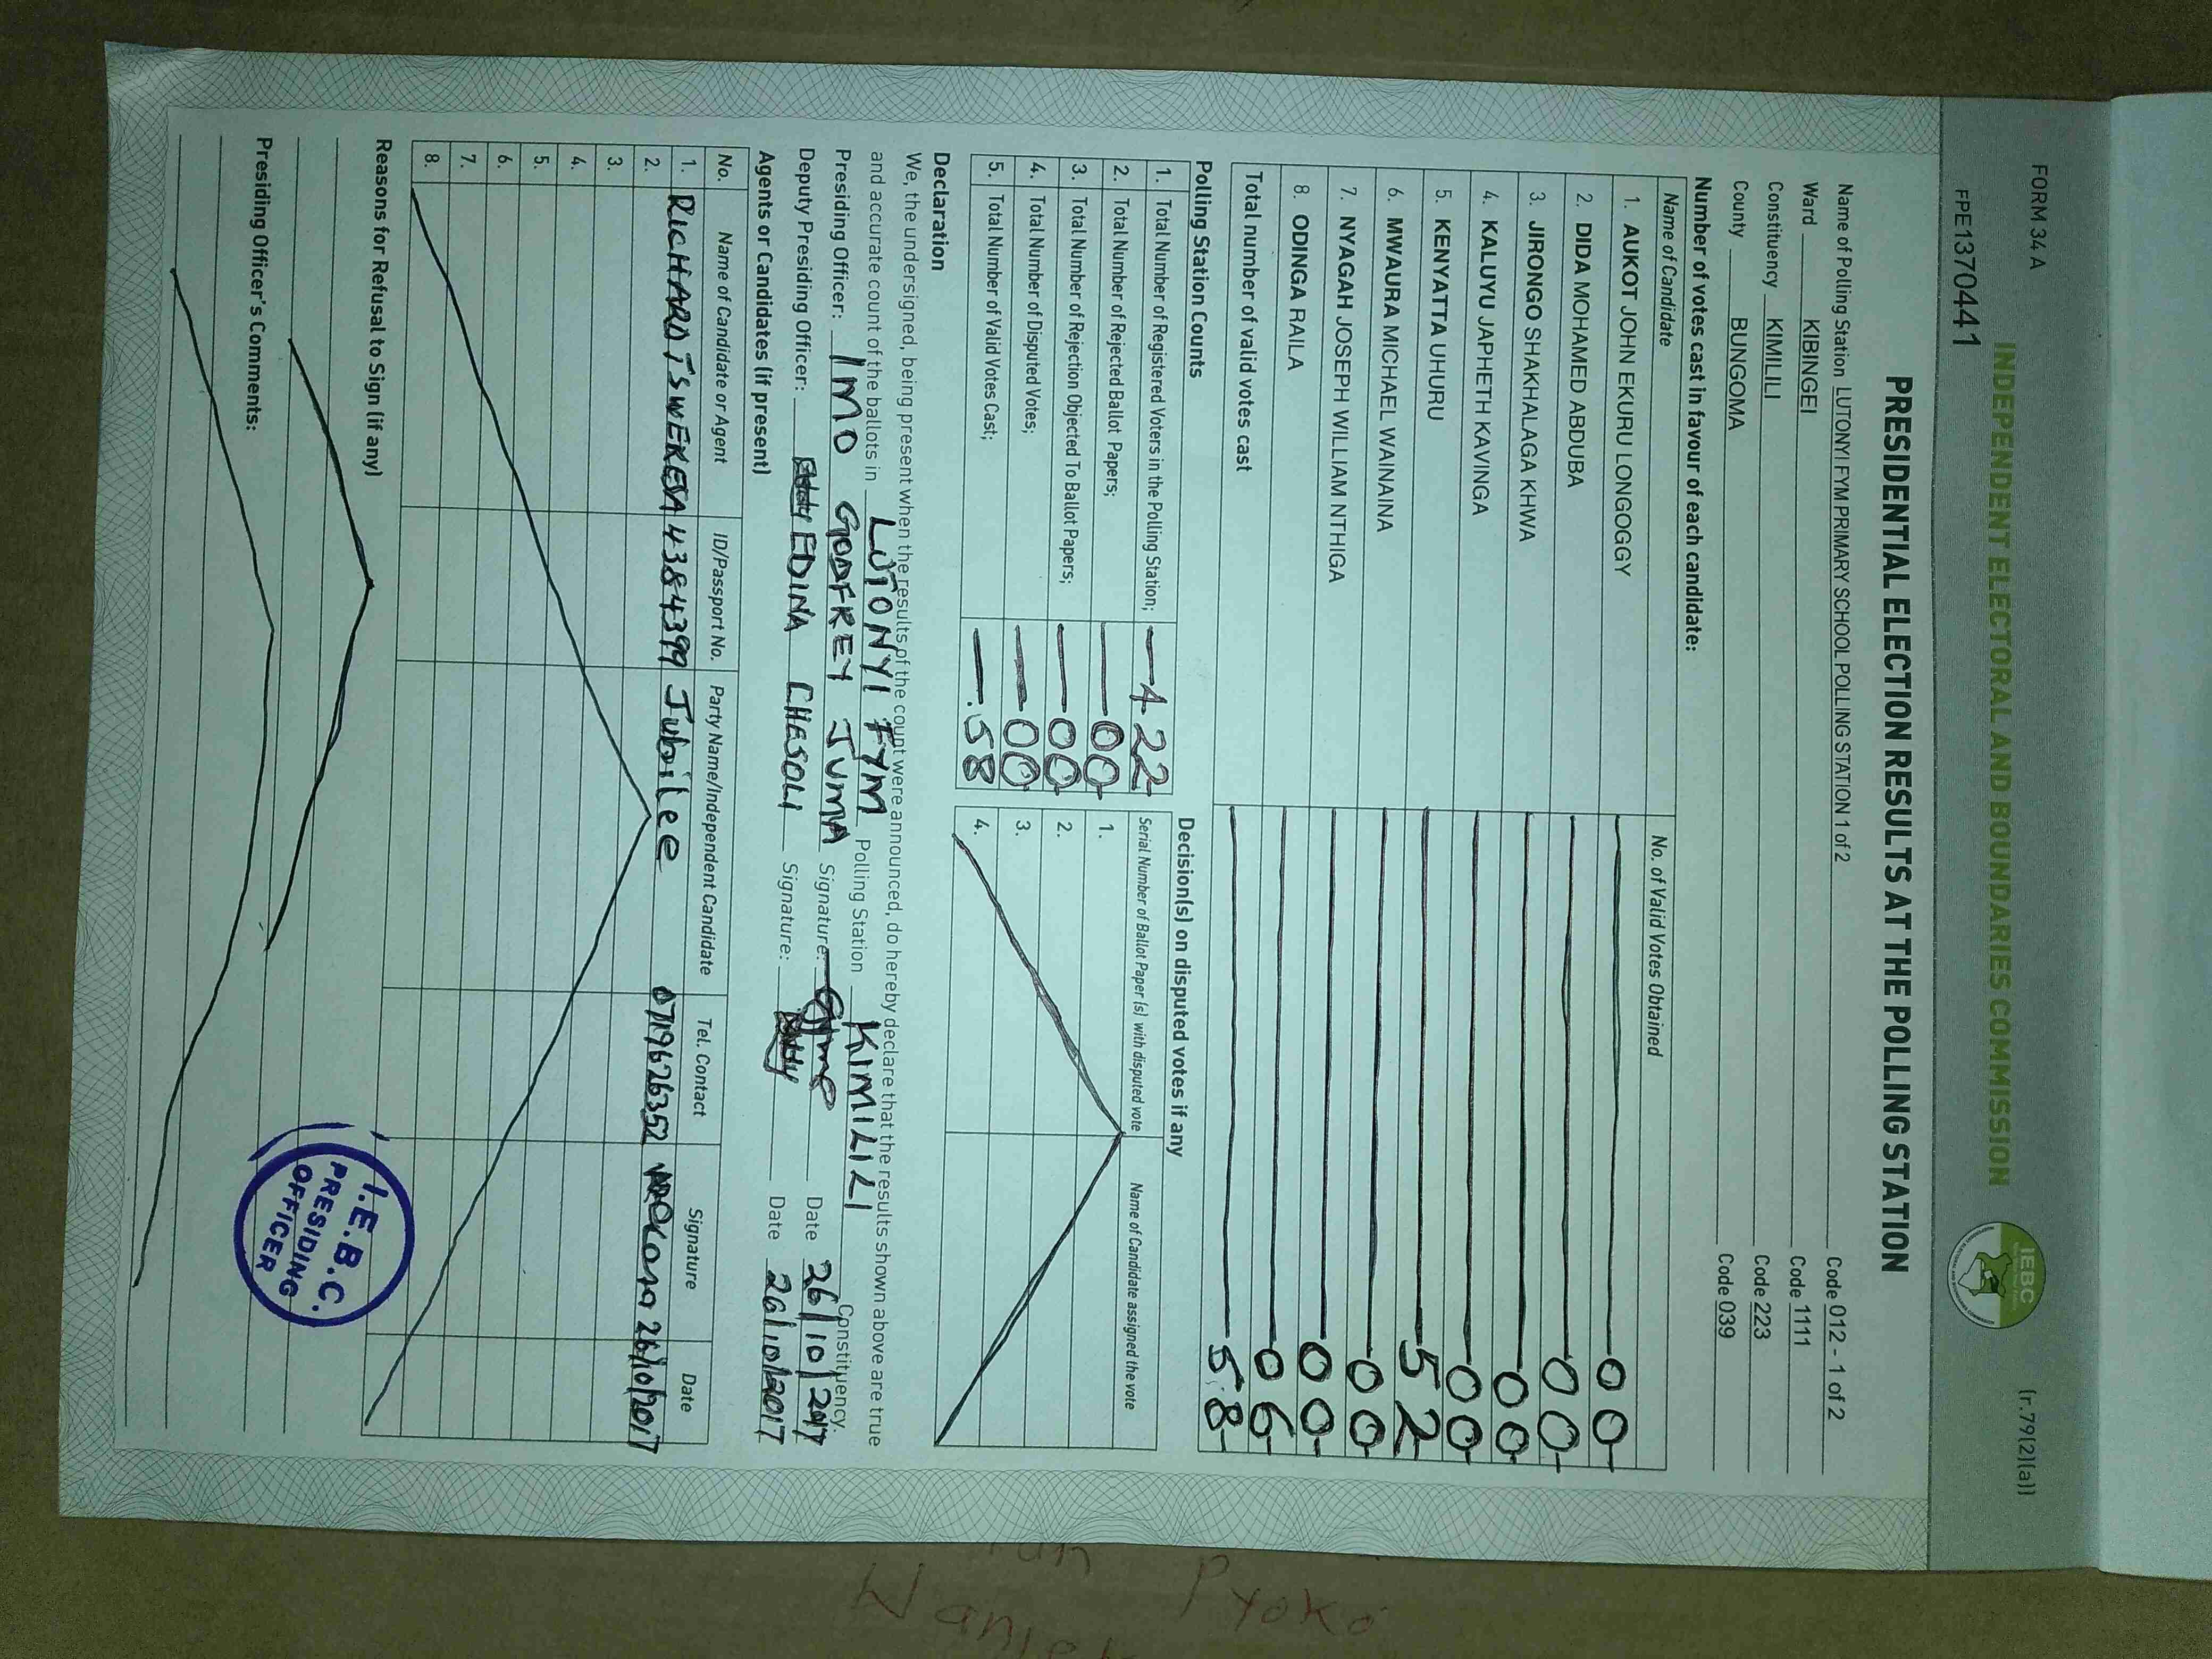 FORM 34 A
(r.79(2)(a))
FPE1370441
INDEPENDENT ELECTORAL AND BOUNDARIES COMMISSION
IEBC
PRESIDENTIAL ELECTION RESULTS AT THE POLLING STATION
Name of Polling Station LUTONYI FYM PRIMARY SCHOOL POLLING STATION 1 of 2 Code 012 - 1 of 2
Ward KIBINGEI Code 1111
Constituency KIMILILI Code 223
County BUNGOMA Code 039
Number of votes cast in favour of each candidate:
Name of Candidate No. of Valid Votes Obtained
1. AUKOT JOHN EKURU LONGOGGY 00
2. DIDA MOHAMED ABDUBA 00
3. JIRONGO SHAKHALAGA KHWA 00
4. KALUYU JAPHETH KAVINGA 00
5. KENYATTA UHURU 52
6. MWAURA MICHAEL WAINAINA 00
7. NYAGAH JOSEPH WILLIAM NTHIGA 00
8. ODINGA RAILA 06
Total number of valid votes cast 58
Polling Station Counts
1. Total Number of Registered Voters in the Polling Station; 422
2. Total Number of Rejected Ballot Papers; 00
3. Total Number of Rejection Objected To Ballot Papers; 00
4. Total Number of Disputed Votes; 00
5. Total Number of Valid Votes Cast; 58
Decision(s) on disputed votes if any
Serial Number of Ballot Paper (s) with disputed vote Name of Candidate assigned the vote
1.
2.
3.
4.
Declaration
We, the undersigned, being present when the results of the count were announced, do hereby declare that the results shown above are true
and accurate count of the ballots in LUTONYI FYM Polling Station KIMILILI Constituency.
Presiding Officer: IMO GODFREY JUMA Signature: Date 26/10/2017
Deputy Presiding Officer: EDINA CHESOLI Signature: Date 26/10/2017
Agents or Candidates (if present)
No. Name of Candidate or Agent ID/Passport No. Party Name/Independent Candidate Tel. Contact Signature Date
1. RICHARD TS WEKESA 4384399 Jubilee 0719626352 26/10/2017
2.
3.
4.
5.
6.
7.
8.
Reasons for Refusal to Sign (if any)
Presiding Officer's Comments:
I.E.B.C.
PRESIDING
OFFICER
Pyoko